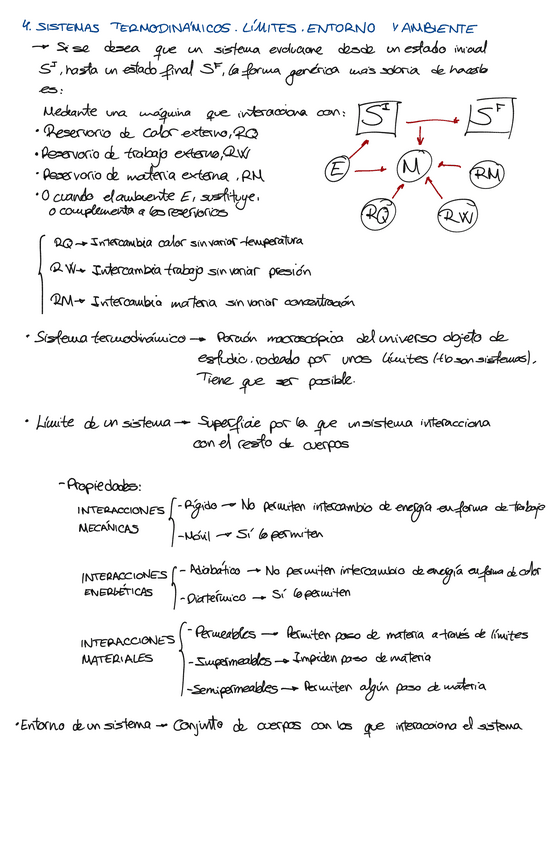 4. SISTEMAS TERMODINÁMICOS. LÍMITES. ENTORNO Y AMBIENTE
→ Si se desea que un sistema evolucione desde un estado inicial
S^I, hasta un estado final S^F, la forma genérica más sobria de hacerlo
es:
Mediante una máquina que interacciona con:
• Reservorio de calor externo, RQ
• Reservorio de trabajo externo, RW
• Reservorio de materia externa, RM
• O cuando el ambiente E, sustituye,
o complementa a los reservorios
S^I → S^F
E → M ← RM
RQ RW
RQ → Intercambia calor sin variar temperatura
RW → Intercambia trabajo sin variar presión
RM → Intercambia materia sin variar concentración
• Sistema termodinámico → Porción macroscópica del universo objeto de
estudio, rodeado por unos límites (tb son sistemas).
Tiene que ser posible.
• Límite de un sistema → Superficie por la que un sistema interacciona
con el resto de cuerpos
- Propiedades:
INTERACCIONES MECÁNICAS
- Rígido → No permiten intercambio de energía en forma de trabajo
- Móvil → Sí lo permiten
INTERACCIONES ENERGÉTICAS
- Adiabático → No permiten intercambio de energía en forma de calor
- Diatérmico → Sí lo permiten
INTERACCIONES MATERIALES
- Permeables → Permiten paso de materia a través de límites
- Impermeables → Impiden paso de materia
- Semipermeables → Permiten algún paso de materia
• Entorno de un sistema → Conjunto de cuerpos con los que interacciona el sistema